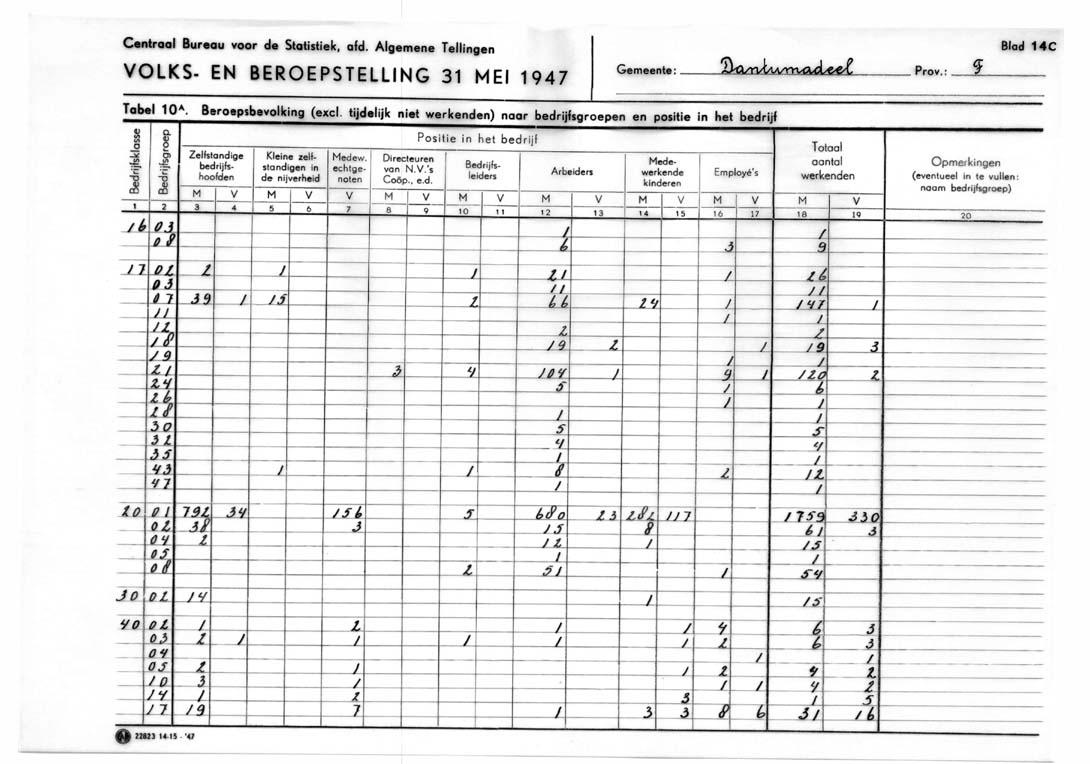 Centraal Bureau voor de Statistiek, afd. Algemene Tellingen
Blad 14C
VOLKS- EN BEROEPSTELLING 31 MEI 1947
Gemeente: Dantumadeel Prov.: F
Tabel 10A. Beroepsbevolking (excl. tijdelijk niet werkenden) naar bedrijfsgroepen en positie in het bedrijf
Bedrijfsklasse
Bedrijfsgroep
Positie in het bedrijf
Zelfstandige bedrijfs- hoofden
Kleine zelf- standigen in de nijverheid
Medew. echtge- noten
Directeuren van N.V.'s Coöp., e.d.
Bedrijfs- leiders
Arbeiders
Mede- werkende kinderen
Employé's
Totaal aantal werkenden
Opmerkingen (eventueel in te vullen: naam bedrijfsgroep)
M V M V V M V M V M V M V M V M V
1 2 3 4 5 6 7 8 9 10 11 12 13 14 15 16 17 18 19 20
16 03 1 1
08 6 3 9
17 02 2 1 1 21 1 26
03 11 11
07 39 1 15 2 66 24 1 147 1
11 1 1
12 2 2
18 19 2 1 19 3
19 1 1
21 3 4 104 1 9 1 120 2
24 5 1 6
26 1 1
28 1 1
30 5 5
32 4 4
35 1 1
43 1 1 8 2 12
47 1 1
20 01 792 34 156 5 680 23 282 117 1759 330
02 38 3 15 8 61 3
04 2 12 1 15
05 1 1
08 2 51 1 54
30 02 14 1 15
40 02 1 2 1 1 4 6 3
03 2 1 1 1 1 1 2 6 3
04 1 1
05 2 1 1 2 4 2
10 3 1 1 1 4 2
14 1 2 3 1 5
17 19 7 1 3 3 8 6 31 16
22823 14-15 - '47